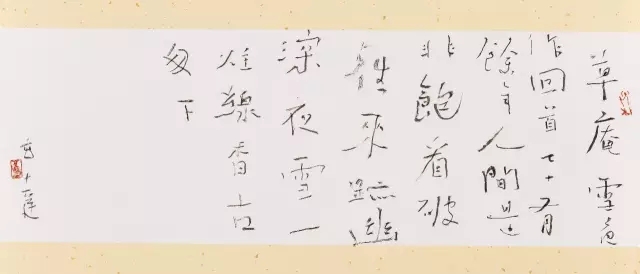 草庵雪夜
作回首七十有
餘年人間是
非飽看破
往来跡幽
深夜雪一
炷線香古
下